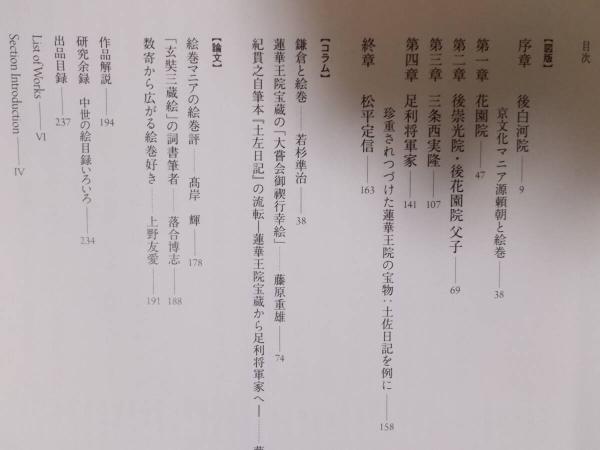 目次
【図版】
序章 後白河院——9
京文化マニア源頼朝と絵巻——38
第一章 花園院——47
第二章 後崇光院・後花園院 父子——69
第三章 三条西実隆——107
第四章 足利将軍家——141
珍重されつづけた蓮華王院の宝物:土佐日記を例に——158
終章 松平定信——163
【コラム】
鎌倉と絵巻——若杉準治——38
蓮華王院宝蔵の「大嘗会御禊行幸絵」……藤原重雄——74
紀貫之自筆本『土左日記』の流転—蓮華王院宝蔵から足利将軍家へ—……
【論文】
絵巻マニアの絵巻評——髙岸 輝——178
「玄奘三蔵絵」の詞書筆者——落合博志——188
数寄から広がる絵巻好き——上野友愛——191
作品解説 194
研究余録 中世の絵目録いろいろ——234
出品目録——237
List of Works——VI
Section Introduction——IV